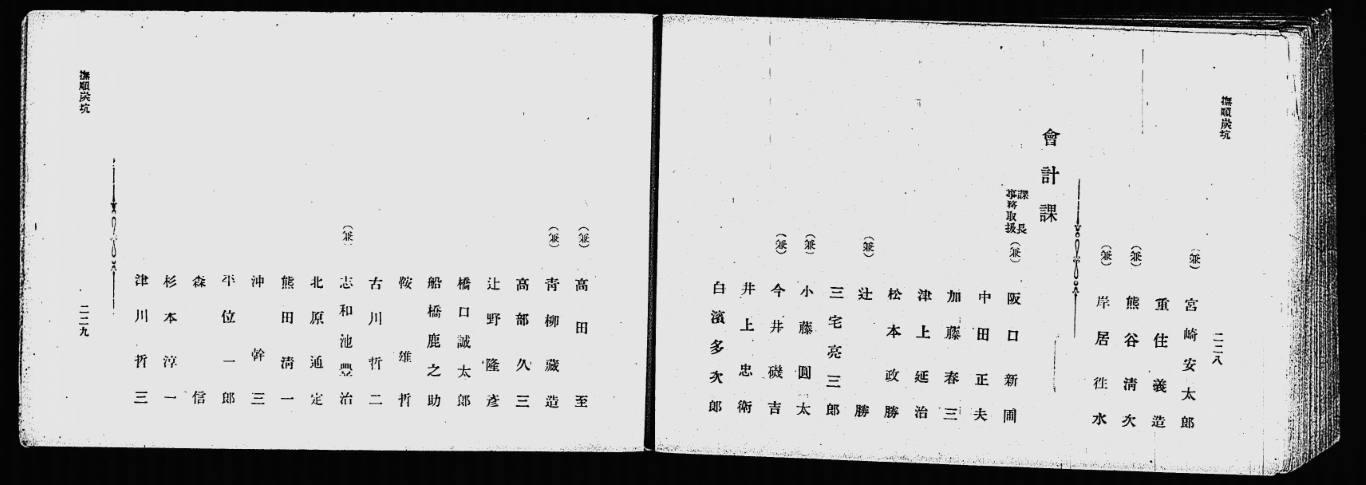 撫順炭坑
二二八
(兼) 宮崎安太郎
重住義造
(兼) 熊谷清次
(兼) 岸居徃水
會計課
課長事務取扱 (兼) 阪口新圃
中田正夫
加藤春三
津上延治
松本政勝
(兼) 辻勝
三宅亮三郎
(兼) 小藤圓太
(兼) 今井磯吉
井上忠衛
白濱多次郎
(兼) 高田至
(兼) 青柳藏造
高部久三
辻野隆彥
橋口誠太郎
船橋鹿之助
鞍雄哲
古川哲二
(兼) 志和池豐治
北原通定
熊田清一
沖幹三
平位一郎
森信
杉本淳一
津川哲三
撫順炭坑
二二九